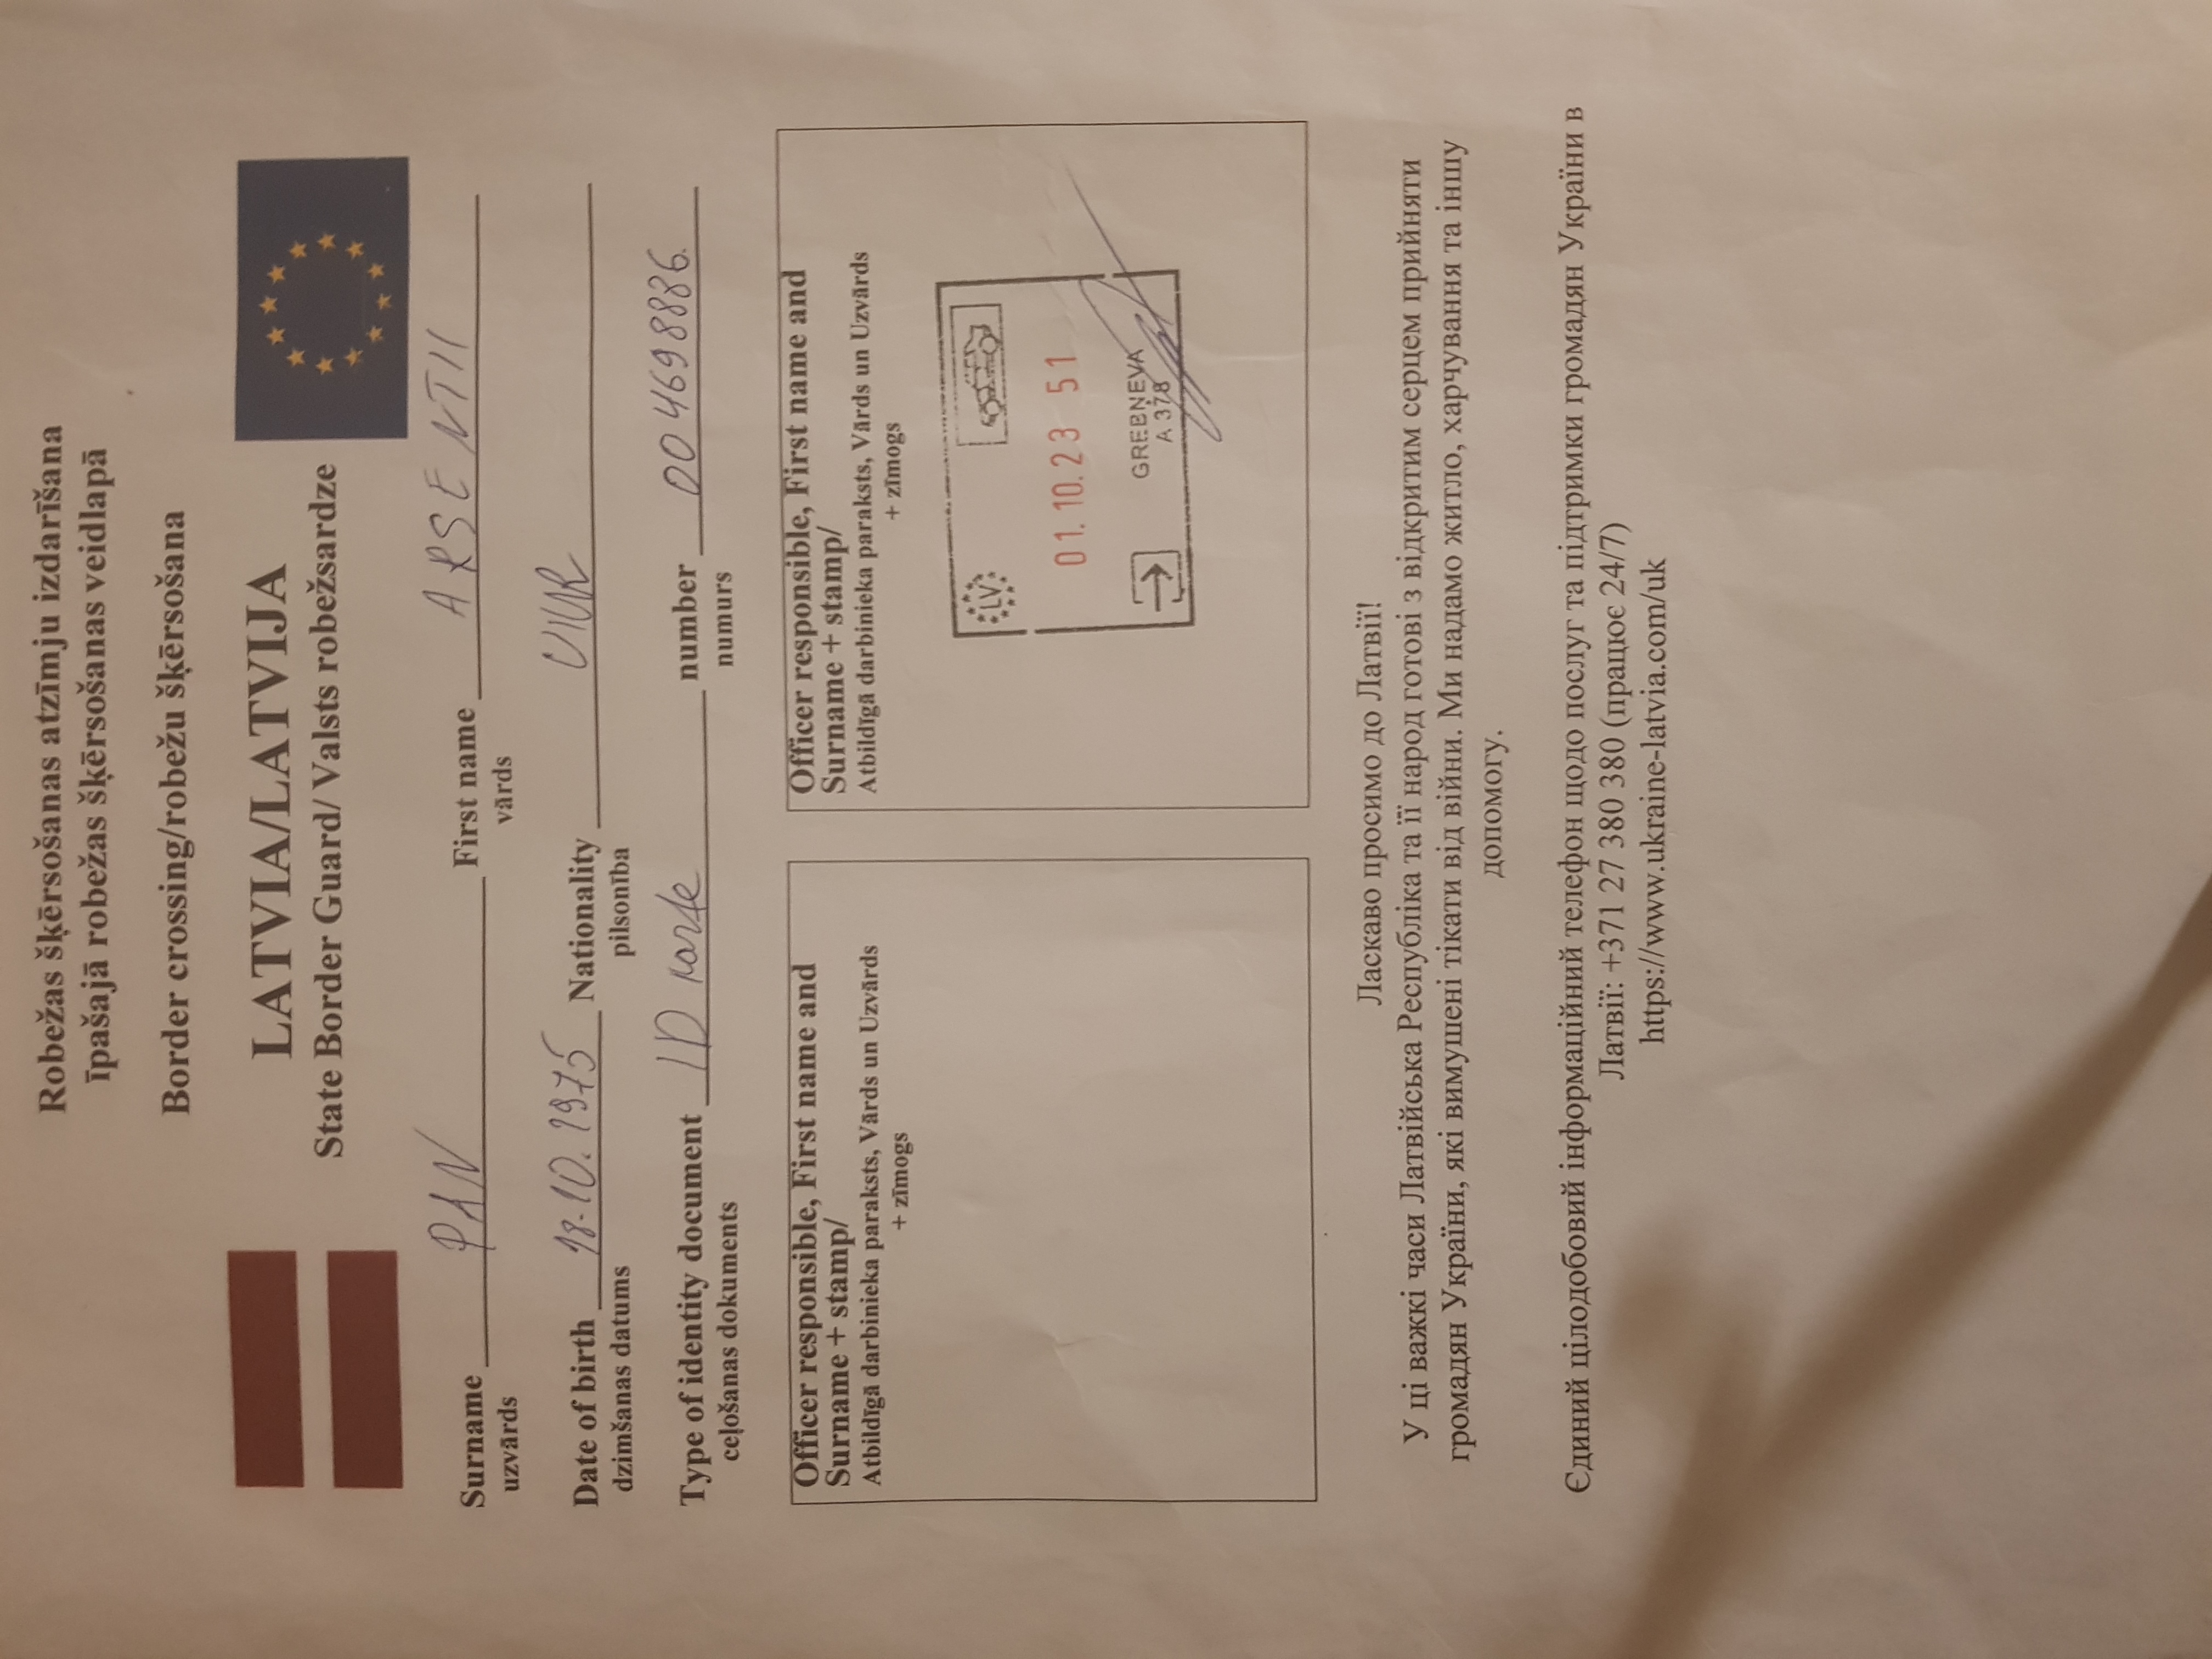 Robežas šķērsošanas atzīmju izdarīšana
īpašajā robežas šķērsošanas veidlapā
Border crossing/robežu šķērsošana
LATVIA/LATVIJA
State Border Guard/ Valsts robežsardze
Surname PAN First name ARSENTII
uzvārds vārds
Date of birth 18.10.1975 Nationality UKR
dzimšanas datums pilsonība
Type of identity document ID karte number 004698886
ceļošanas dokuments numurs
Officer responsible, First name and
Surname + stamp/
Atbildīgā darbinieka paraksts, Vārds un Uzvārds
+ zīmogs
Officer responsible, First name and
Surname + stamp/
Atbildīgā darbinieka paraksts, Vārds un Uzvārds
+ zīmogs
LV
01.10.23 51
GREBŅEVA
A 378
Ласкаво просимо до Латвії!
У ці важкі часи Латвійська Республіка та її народ готові з відкритим серцем прийняти
громадян України, які вимушені тікати від війни. Ми надамо житло, харчування та іншу
допомогу.
Єдиний цілодобовий інформаційний телефон щодо послуг та підтримки громадян України в
Латвії: +371 27 380 380 (працює 24/7)
https://www.ukraine-latvia.com/uk